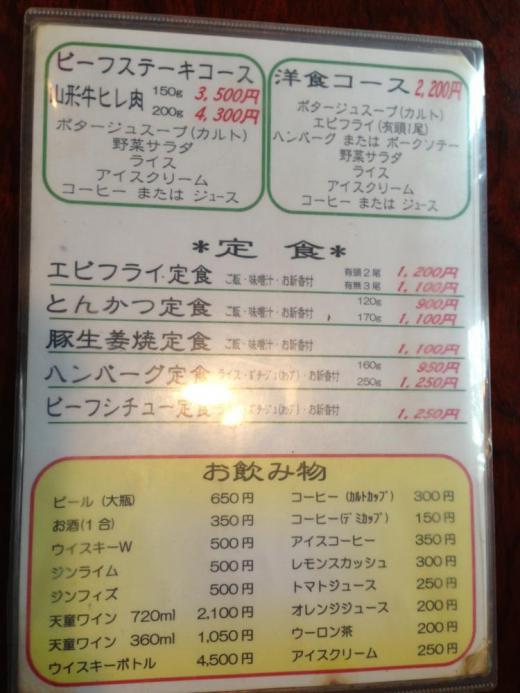 ビーフステーキコース
山形牛ヒレ肉 150g 3,500円
200g 4,300円
ポタージュスープ(カルト)
野菜サラダ
ライス
アイスクリーム
コーヒー または ジュース
洋食コース 2,200円
ポタージュスープ(カルト)
エビフライ(有頭1尾)
ハンバーグ または ポークソテー
野菜サラダ
ライス
アイスクリーム
コーヒー または ジュース
*定 食*
エビフライ定食 ご飯・味噌汁・お新香付 有頭2尾 1,200円
有無3尾 1,100円
とんかつ定食 ご飯・味噌汁・お新香付 120g 900円
170g 1,100円
豚生姜焼定食 ご飯・味噌汁・お新香付 1,100円
ハンバーグ定食 ライス・ 160g 950円
・お新香付 250g 1,250円
ビーフシチュー定食 ・お新香付 1,250円
お飲み物
ビール (大瓶) 650円
お酒(1合) 350円
ウイスキーW 500円
ジンライム 500円
ジンフィズ 500円
天童ワイン 720ml 2,100円
天童ワイン 360ml 1,050円
ウイスキーボトル 4,500円
コーヒー (カルトカップ) 300円
コーヒー(デミカップ) 150円
アイスコーヒー 350円
レモンスカッシュ 300円
トマトジュース 250円
オレンジジュース 200円
ウーロン茶 200円
アイスクリーム 250円